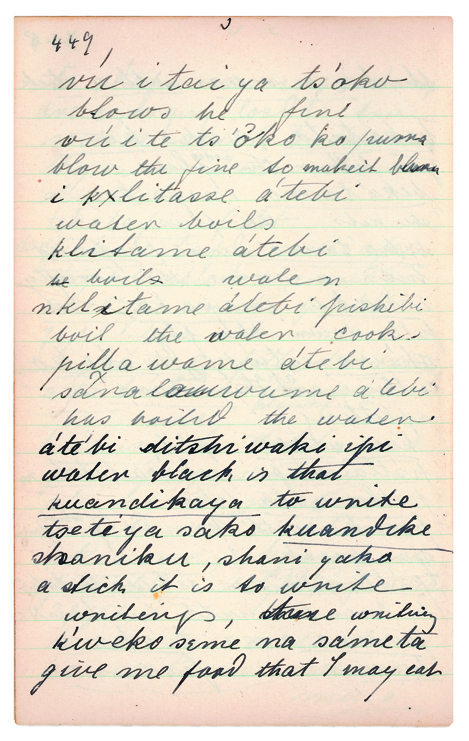 449,
vú i tai ya ts'óko
blows he fine
vú i i te ts'óko ko puma
blow the fine to makeit
i kxlitasse átebi
water boils
klitame átebi
boils water
nklitame átebi pishibi
boil the water cook.
pilla wame átebi
átebi
has boiled the water.
átébi ditshiwaki ipi
water black is that
kuandikaya to write
tseteya sako kuandike
shaniku, shani yako
a stick it is to write
writing, writing
k'weko seme na sámetá
give me food that I may eat